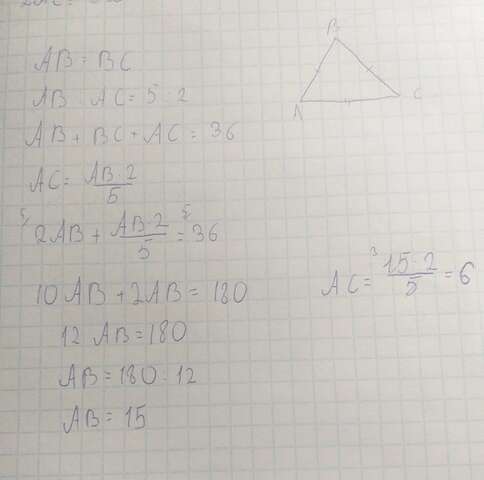 AB = BC
AB : AC = 5 : 2
AB + BC + AC = 36
AC = AB · 2 / 5
5/ 2AB + AB · 2 / 5 = 36
10 AB + 2AB = 180
12 AB = 180
AB = 180 : 12
AB = 15
B
A C
AC = 15 · 2 / 5 = 6